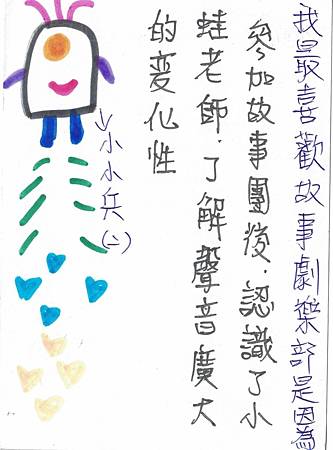 我最喜歡故事劇樂部是因為
參加故事團後.認識了小
蛙老師.了解聲音廣大
的变化性
小小兵(二)